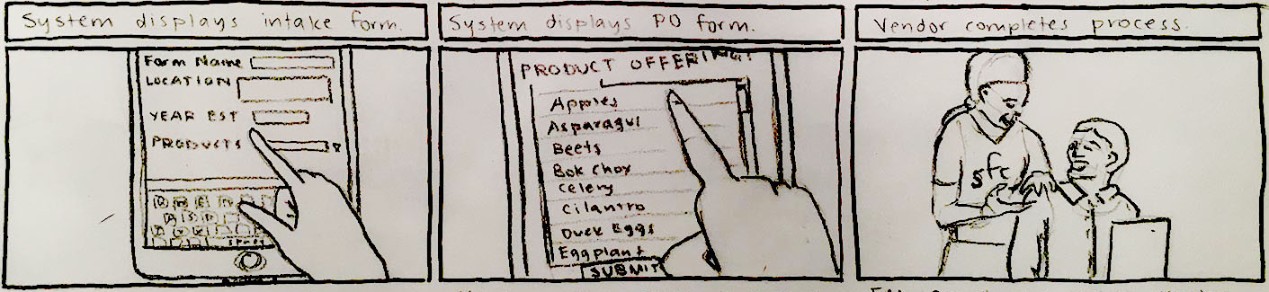 System displays intake form.
Farm Name
LOCATION
YEAR EST
PRODUCTS
System displays PO form.
PRODUCT
Apples
Asparagus
Beets
Bok Choy
Celery
Cilantro
Duck Eggs
Eggplant
SUBMIT
Vendor completes process.
sfc